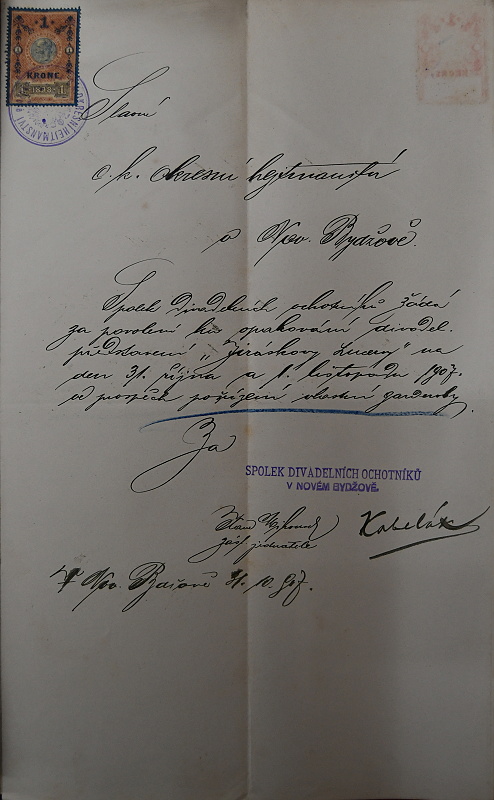 1
KRONE
1898
OKRESNÍ HEJTMANSTVÍ
Slavné
c. k. okresní hejtmanství
v Nov. Bydžově.
Spolek divadelních ochotníků žádá
za povolení ku opakování divadel.
představení „Jiráskovy Lucerny" na
den 31. října a 1. listopadu 1907.
ve prospěch pořízení vlastní garderoby.
Za
SPOLEK DIVADELNÍCH OCHOTNÍKŮ
V NOVÉM BYDŽOVĚ.
Kobelák
jednatele
V Nov. Bydžově 10. 907.